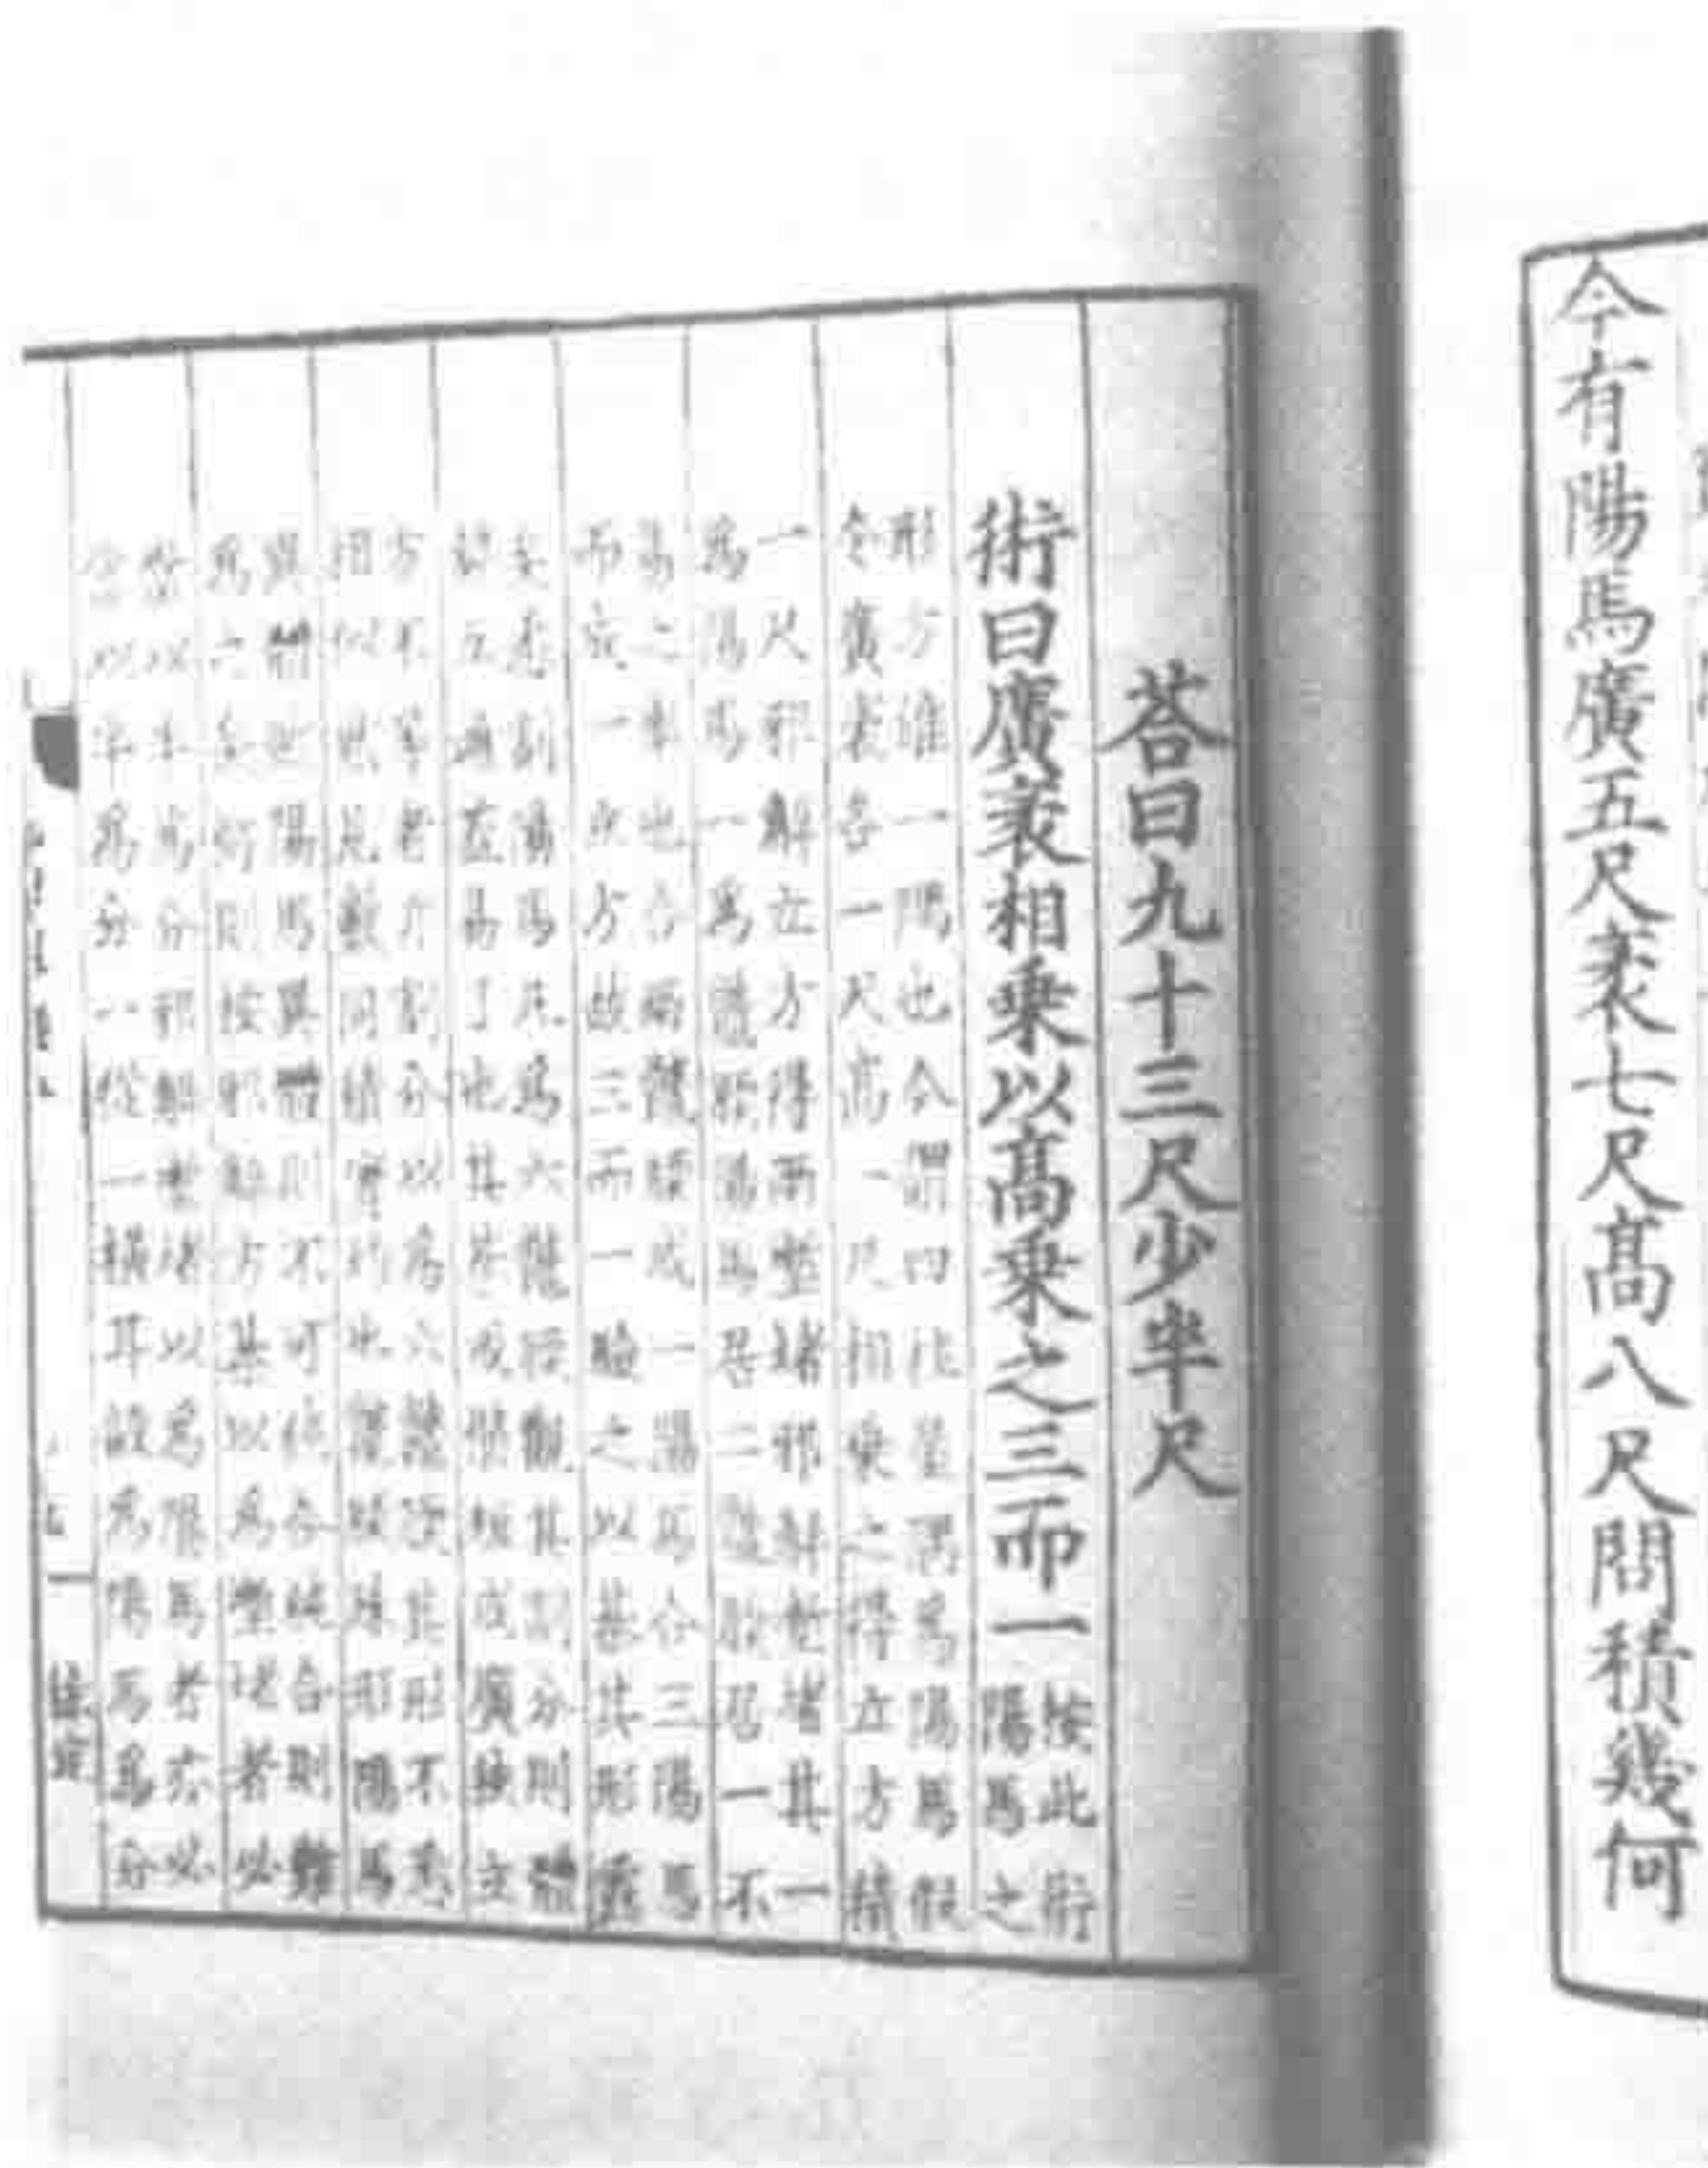 今有陽馬廣五尺袤七尺髙八尺問積幾何
荅曰九十三尺少半尺
術曰廣袤相乗以髙乗之三而一按此術
陽馬之
形方雖一隅也今謂四柱屋隅為陽馬假
令廣袤各一尺髙一尺相乗之得立方積
一尺邪解立方得兩壍堵邪解壍堵其一
為陽馬一為鼈腝陽馬居二鼈腝居一不
易之率也合兩鼈腝成一陽馬合三陽馬
而成一立方故三而一驗之以棊其形露
矣悉割陽馬凡為六鼈腝觀其割分則體
勢互通蓋易了也其棊或脩短或廣狹立
方不等者亦割分以為六鼈腝其形不悉
相似然見數同積實均也鼈腝殊形陽馬
異體然陽馬異體則不可純合純合則難
為之矣何則按邪解方棊以為壍堵者必
當以半為分邪解壍堵以為陽馬者亦必
當以半為分一從一橫耳設為陽馬為分